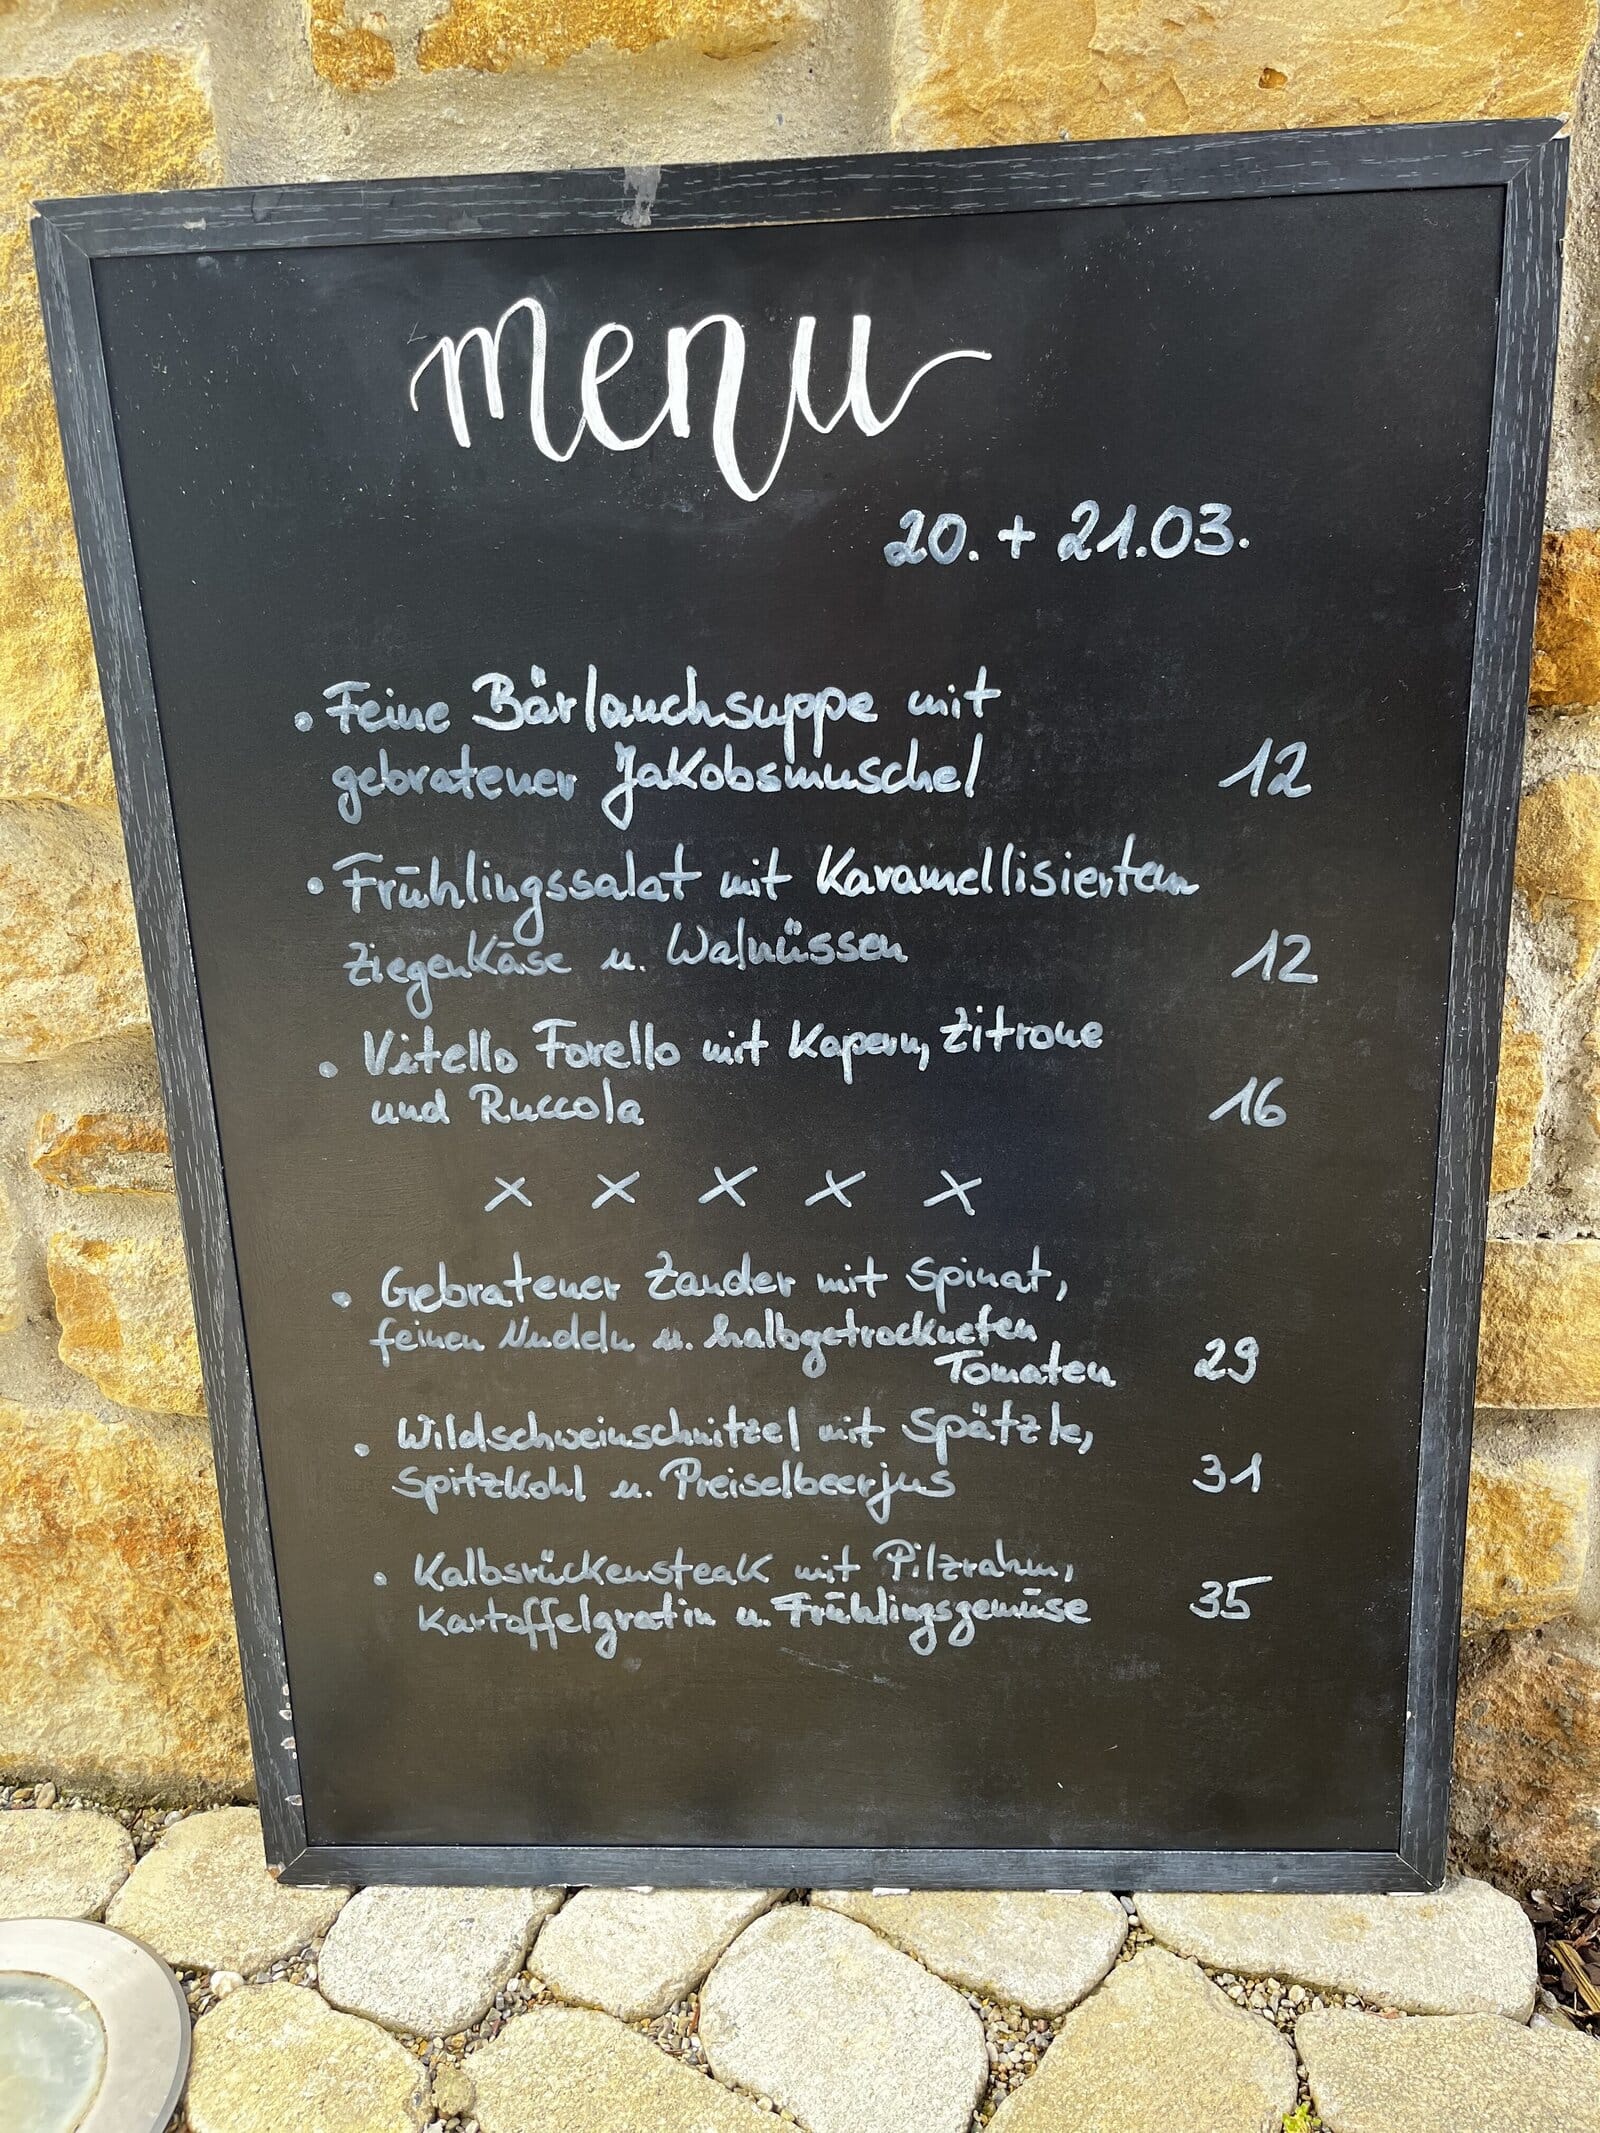 menu
20. + 21.03.
• Feine Bärlauchsuppe mit
gebratener Jakobsmuschel 12
• Frühlingssalat mit Karamellisiertem
Ziegenkäse u. Walnüssen 12
• Vitello Forello mit Kapern, Zitrone
und Ruccola 16
x x x x x
• Gebratener Zander mit Spinat,
feinen Nudeln u. halbgetrockneten
Tomaten 29
• Wildschweinschnitzel mit Spätzle,
Spitzkohl u. Preiselbeerjus 31
• Kalbsrückensteak mit Pilzrahm,
Kartoffelgratin u. Frühlingsgemüse 35